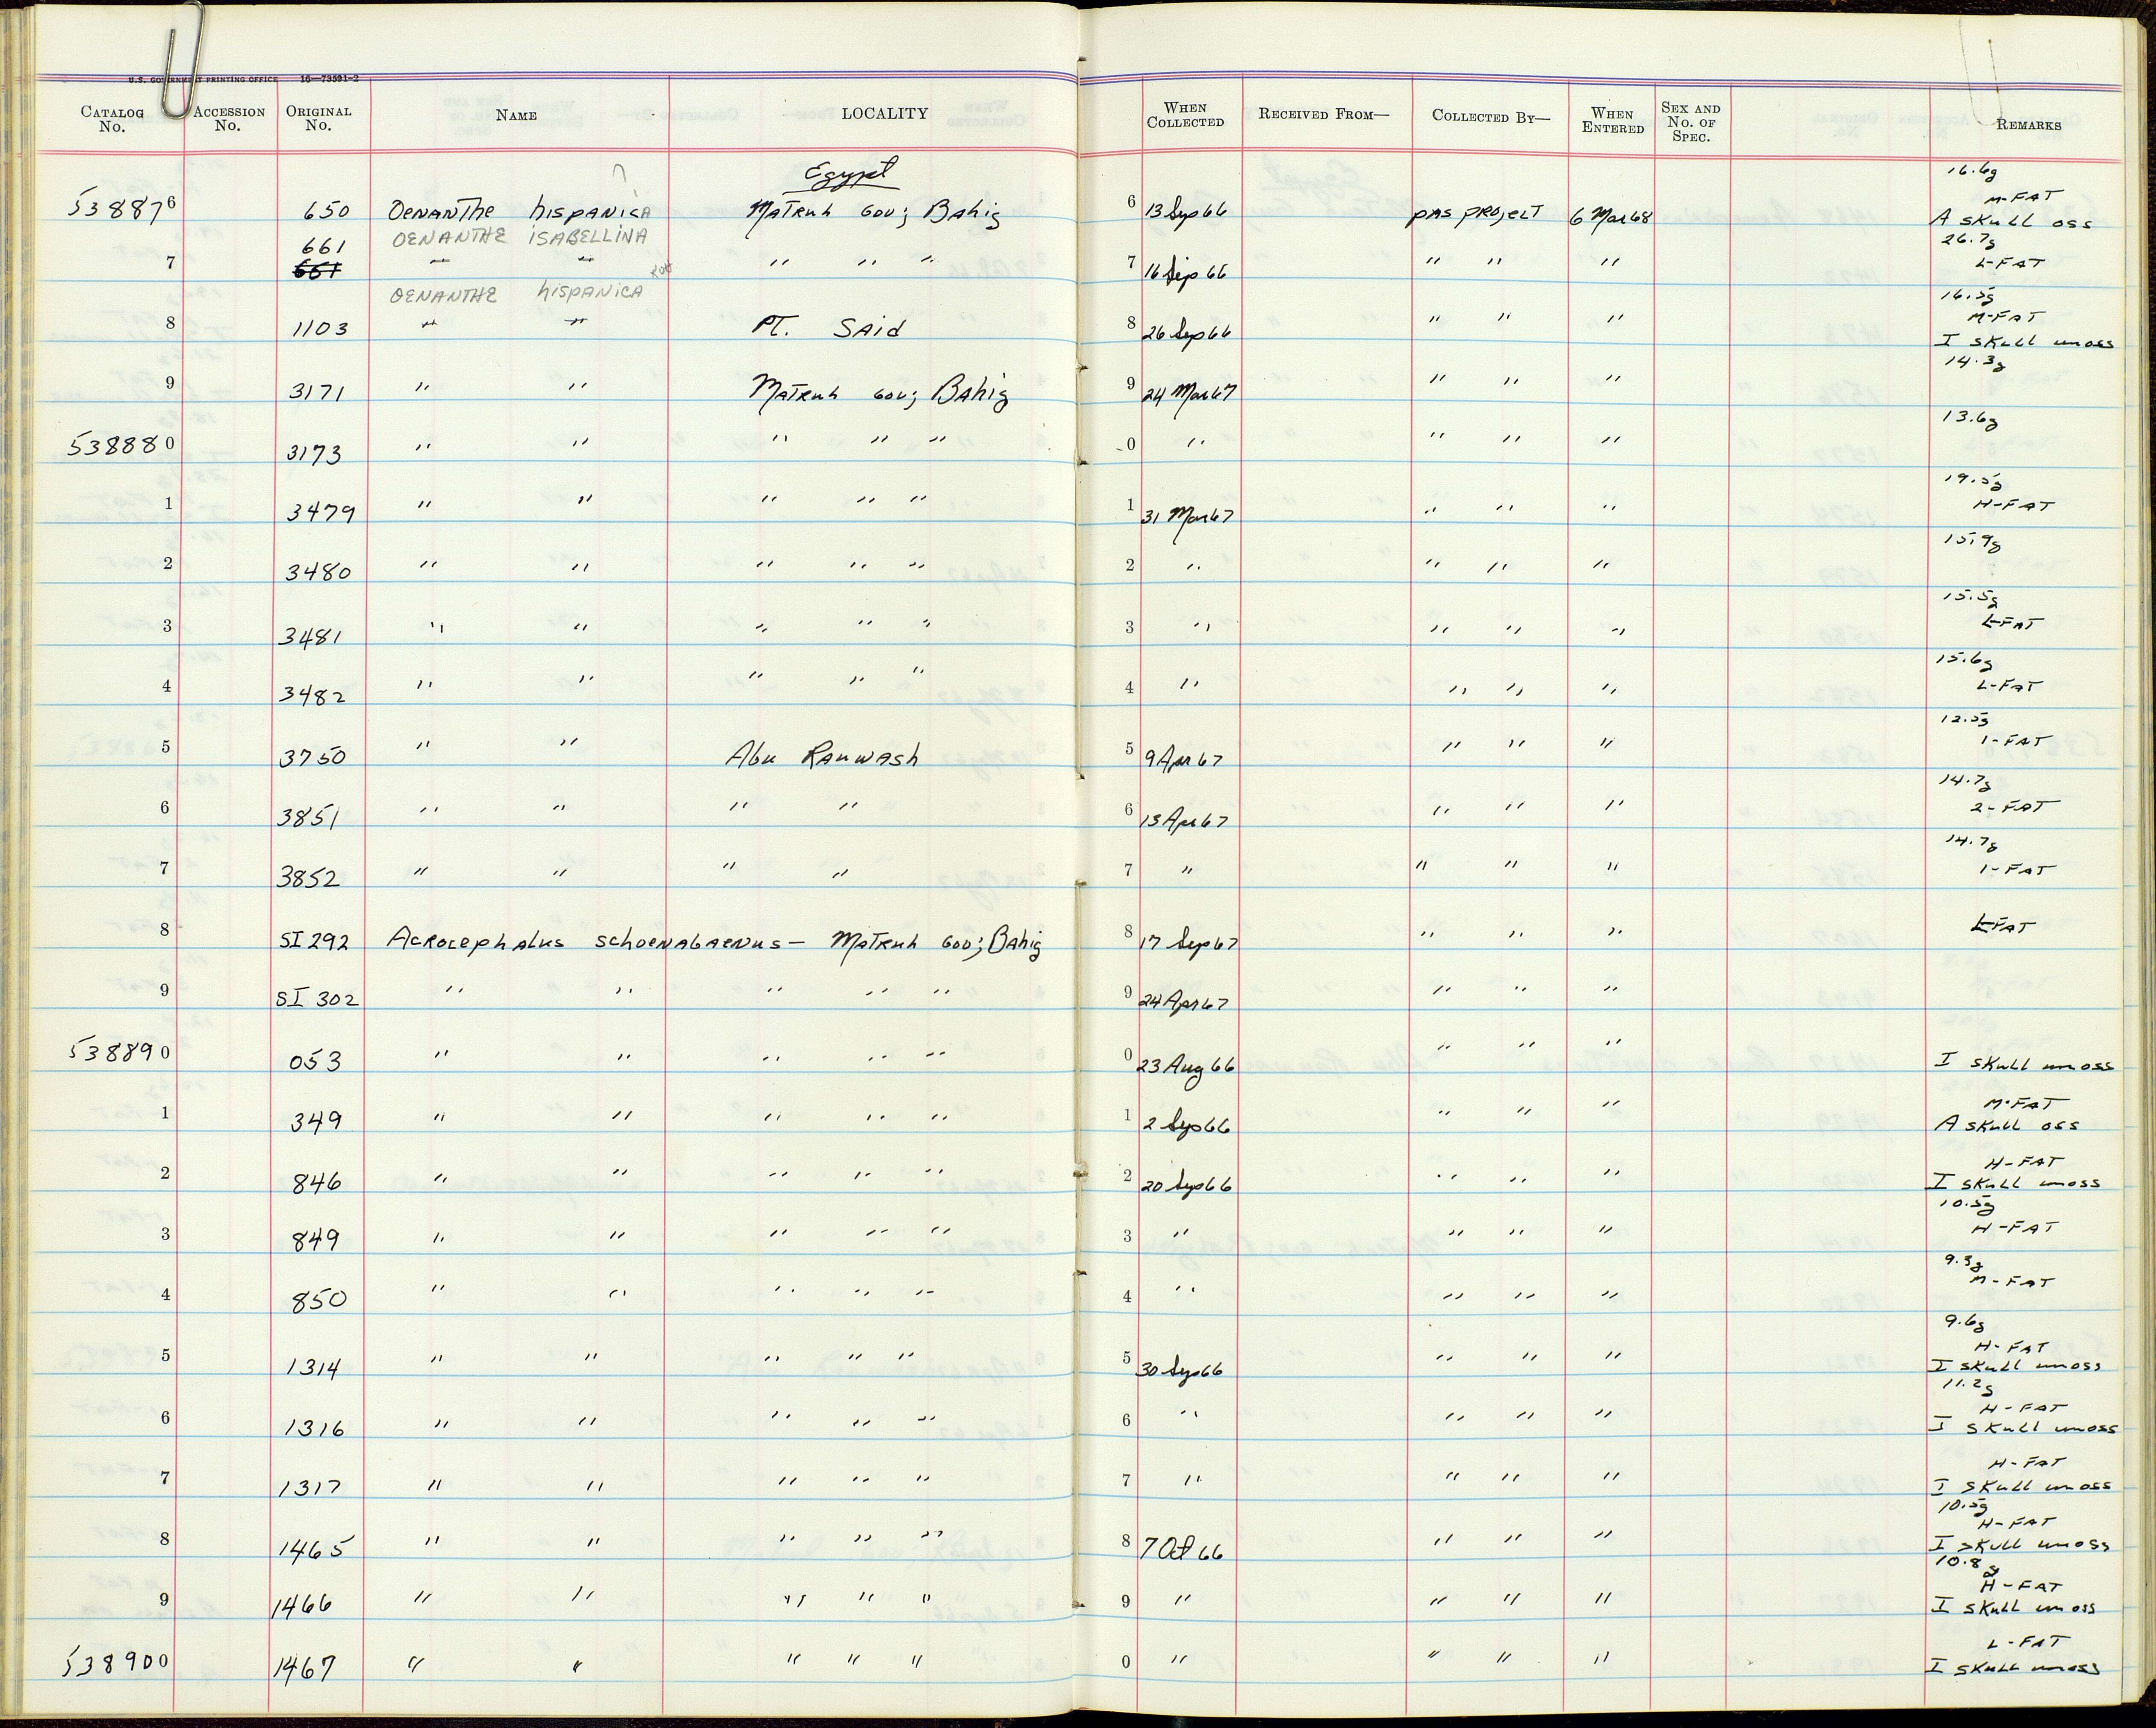 U.S. GOVERNMENT PRINTING OFFICE 16—73591-2
CATALOG No. ACCESSION No. ORIGINAL No. NAME LOCALITY WHEN COLLECTED RECEIVED FROM— COLLECTED BY— WHEN ENTERED SEX AND No. OF SPEC. REMARKS
Egypt 16.6g
M-FAT
538876 650 Oenanthe hispanica Matruh Gov; Bahig 6 13 Sep 66 PMS Project 6 Mar 68 A skull oss
661 OENANTHE ISABELLINA 26.7g
7 661 " " " " " 7 16 Sep 66 " " " L-FAT
OENANTHE hispanica 16.5g
M-FAT
8 1103 " " Pt. Said 8 26 Sep 66 " " " I skull unoss
14.3g
9 3171 " " Matruh Gov; Bahig 9 24 Mar 67 " " "
13.6g
538880 3173 " " " " " 0 " " " "
19.5g
1 3479 " " " " " 1 31 Mar 67 " " " H-FAT
15.9g
2 3480 " " " " " 2 " " " "
15.5g
3 3481 " " " " " 3 " " " " L-FAT
15.6g
4 3482 " " " " " 4 " " " " L-FAT
12.5g
5 3750 " " Abu Rauwash 5 9 Apr 67 " " " 1-FAT
14.7g
6 3851 " " " " 6 13 Apr 67 " " " 2-FAT
14.7g
7 3852 " " " " 7 " " " " 1-FAT
8 SI 292 Acrocephalus schoenabaenus — Matruh Gov; Bahig 8 17 Sep 67 " " " L-FAT
9 SI 302 " " " " " 9 24 Apr 67 " " "
538890 053 " " " " " 0 23 Aug 66 " " " I skull unoss
M-FAT
1 349 " " " " " 1 2 Sep 66 " " " A skull oss
H-FAT
2 846 " " " " " 2 20 Sep 66 " " " I skull unoss
10.5g
3 849 " " " " " 3 " " " " H-FAT
9.3g
4 850 " " " " " 4 " " " " M-FAT
9.6g
H-FAT
5 1314 " " " " " 5 30 Sep 66 " " " I skull unoss
11.2g
H-FAT
6 1316 " " " " " 6 " " " " I skull unoss
H-FAT
7 1317 " " " " " 7 " " " " I skull unoss
10.5g
H-FAT
8 1465 " " " " " 8 7 Oct 66 " " " I skull unoss
10.8g
H-FAT
9 1466 " " " " " 9 " " " " I skull unoss
L-FAT
538900 1467 " " " " " 0 " " " " I skull unoss